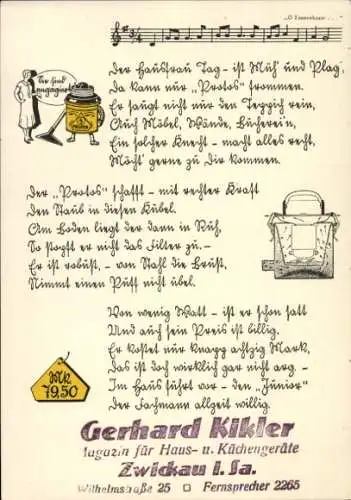 „O Tannenbaum . . .
Sie sind
engagiert
Der Hausfrau Tag - ist Müh' und Plag',
Da kann nur „Protos" frommen.
Er saugt nicht nur den Teppich rein,
Auch Möbel, Wände, Bücherei'n,
Ein solcher Knecht - macht alles recht,
Möcht' gerne zu Dir kommen.
Der „Protos" schafft - mit rechter Kraft
Den Staub in diesen Kübel.
Am Boden liegt der dann in Ruh,
So stopft er nicht das Filter zu. -
Er ist robust, - von Stahl die Brust,
Nimmt einen Puff nicht übel.
Von wenig Watt - ist er schon satt
Und auch sein Preis ist billig.
Er kostet nur knapp achtzig Mark,
Das ist doch wirklich gar nicht arg. -
Im Haus führt vor - den „Junior"
Der Fachmann allzeit willig.
Mk.
79,50
Gerhard Kikler
Magazin für Haus- u. Küchengeräte
Zwickau i. Sa.
Wilhelmstraße 25 Fernsprecher 2265